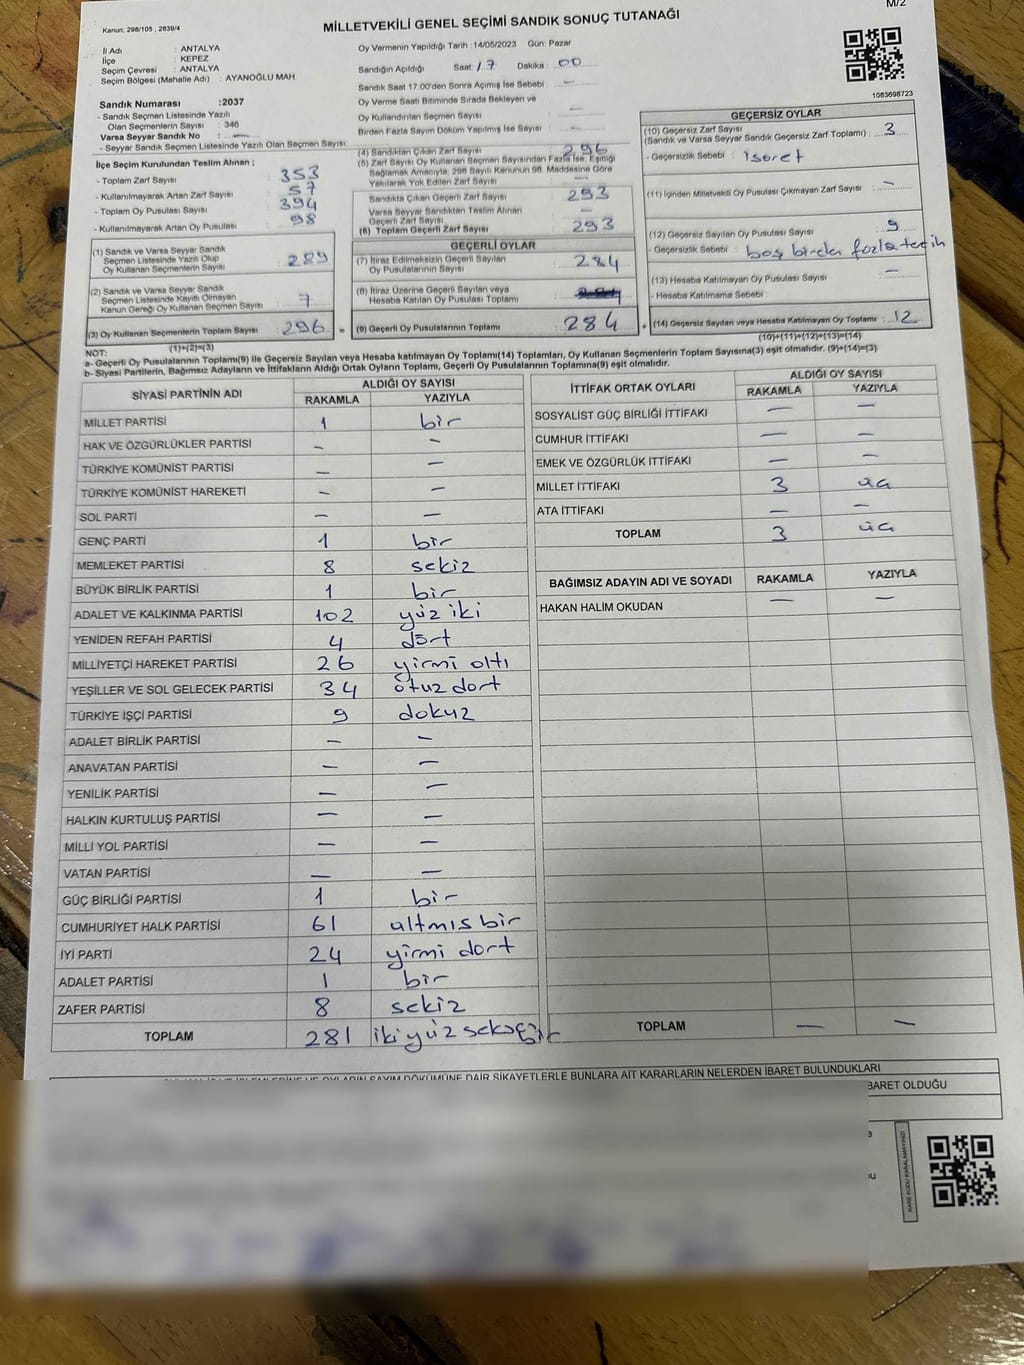 M/2
Kanun: 298/105 , 2839/4
MİLLETVEKİLİ GENEL SEÇİMİ SANDIK SONUÇ TUTANAĞI
İl Adı : ANTALYA
İlçe : KEPEZ
Seçim Çevresi : ANTALYA
Seçim Bölgesi (Mahalle Adı) : AYANOĞLU MAH.
Oy Vermenin Yapıldığı Tarih :14/05/2023 Gün: Pazar
Sandığın Açıldığı Saat: 17 Dakika : 00
Sandık Saat 17:00'den Sonra Açılmış İse Sebebi : —
Oy Verme Saati Bitiminde Sırada Bekleyen ve
Oy Kullandırılan Seçmen Sayısı : —
Birden Fazla Sayım Döküm Yapılmış İse Sayısı : —
1083698723
Sandık Numarası :2037
- Sandık Seçmen Listesinde Yazılı
Olan Seçmenlerin Sayısı : 346
Varsa Seyyar Sandık No : —
- Seyyar Sandık Seçmen Listesinde Yazılı Olan Seçmen Sayısı
İlçe Seçim Kurulundan Teslim Alınan ;
- Toplam Zarf Sayısı : 353
- Kullanılmayarak Artan Zarf Sayısı : 57
- Toplam Oy Pusulası Sayısı : 394
- Kullanılmayarak Artan Oy Pusulası : 98
(1) Sandık ve Varsa Seyyar Sandık
Seçmen Listesinde Yazılı Olup
Oy Kullanan Seçmenlerin Sayısı : 289
(2) Sandık ve Varsa Seyyar Sandık
Seçmen Listesinde Kayıtlı Olmayan
Kanun Gereği Oy Kullanan Seçmen Sayısı : 7
(3) Oy Kullanan Seçmenlerin Toplam Sayısı : 296 =
(1)+(2)=(3)
(4) Sandıktan Çıkan Zarf Sayısı : 296
(5) Zarf Sayısı Oy Kullanan Seçmen Sayısından Fazla İse, Eşitliği
Sağlamak Amacıyla; 298 Sayılı Kanunun 98. Maddesine Göre
Yakılarak Yok Edilen Zarf Sayısı : —
Sandıkta Çıkan Geçerli Zarf Sayısı : 293
Varsa Seyyar Sandıktan Teslim Alınan
Geçerli Zarf Sayısı : —
(6) Toplam Geçerli Zarf Sayısı : 293
GEÇERLİ OYLAR
(7) İtiraz Edilmeksizin Geçerli Sayılan
Oy Pusulalarının Sayısı : 284
(8) İtiraz Üzerine Geçerli Sayılan veya
Hesaba Katılan Oy Pusulası Toplamı :
(9) Geçerli Oy Pusulalarının Toplamı : 284 +
GEÇERSİZ OYLAR
(10) Geçersiz Zarf Sayısı : 3
(Sandık ve Varsa Seyyar Sandık Geçersiz Zarf Toplamı)
- Geçersizlik Sebebi : işaret
(11) İçinden Milletvekili Oy Pusulası Çıkmayan Zarf Sayısı : —
(12) Geçersiz Sayılan Oy Pusulası Sayısı : 9
- Geçersizlik Sebebi : boş birda fazla tercih
(13) Hesaba Katılmayan Oy Pusulası Sayısı : —
- Hesaba Katılmama Sebebi :
(14) Geçersiz Sayılan veya Hesaba Katılmayan Oy Toplamı : 12
(10)+(11)+(12)+(13)=(14)
NOT:
a- Geçerli Oy Pusulalarının Toplamı(9) ile Geçersiz Sayılan veya Hesaba katılmayan Oy Toplamı(14) Toplamları, Oy Kullanan Seçmenlerin Toplam Sayısına(3) eşit olmalıdır. (9)+(14)=(3)
b- Siyasi Partilerin, Bağımsız Adayların ve İttifakların Aldığı Ortak Oyların Toplamı, Geçerli Oy Pusulalarının Toplamına(9) eşit olmalıdır.
SİYASİ PARTİNİN ADI ALDIĞI OY SAYISI
RAKAMLA YAZIYLA
MİLLET PARTİSİ 1 bir
HAK VE ÖZGÜRLÜKLER PARTİSİ — —
TÜRKİYE KOMÜNİST PARTİSİ — —
TÜRKİYE KOMÜNİST HAREKETİ — —
SOL PARTİ — —
GENÇ PARTİ 1 bir
MEMLEKET PARTİSİ 8 sekiz
BÜYÜK BİRLİK PARTİSİ 1 bir
ADALET VE KALKINMA PARTİSİ 102 yüz iki
YENİDEN REFAH PARTİSİ 4 dört
MİLLİYETÇİ HAREKET PARTİSİ 26 yirmi altı
YEŞİLLER VE SOL GELECEK PARTİSİ 34 otuz dort
TÜRKİYE İŞÇİ PARTİSİ 9 dokuz
ADALET BİRLİK PARTİSİ — —
ANAVATAN PARTİSİ — —
YENİLİK PARTİSİ — —
HALKIN KURTULUŞ PARTİSİ — —
MİLLİ YOL PARTİSİ — —
VATAN PARTİSİ — —
GÜÇ BİRLİĞİ PARTİSİ 1 bir
CUMHURİYET HALK PARTİSİ 61 altmıs bir
İYİ PARTİ 24 yirmi dort
ADALET PARTİSİ 1 bir
ZAFER PARTİSİ 8 sekiz
TOPLAM 281
İTTİFAK ORTAK OYLARI ALDIĞI OY SAYISI
RAKAMLA YAZIYLA
SOSYALİST GÜÇ BİRLİĞİ İTTİFAKI — —
CUMHUR İTTİFAKI — —
EMEK VE ÖZGÜRLÜK İTTİFAKI — —
MİLLET İTTİFAKI 3 üç
ATA İTTİFAKI — —
TOPLAM 3 üç
BAĞIMSIZ ADAYIN ADI VE SOYADI RAKAMLA YAZIYLA
HAKAN HALİM OKUDAN — —
TOPLAM — —
SAYIM DÖKÜMÜNE DAİR ŞİKAYETLERLE BUNLARA AİT KARARLARIN NELERDEN İBARET BULUNDUKLARI
BARET OLDUĞU
KARE KODU KARALAMAYINIZ!